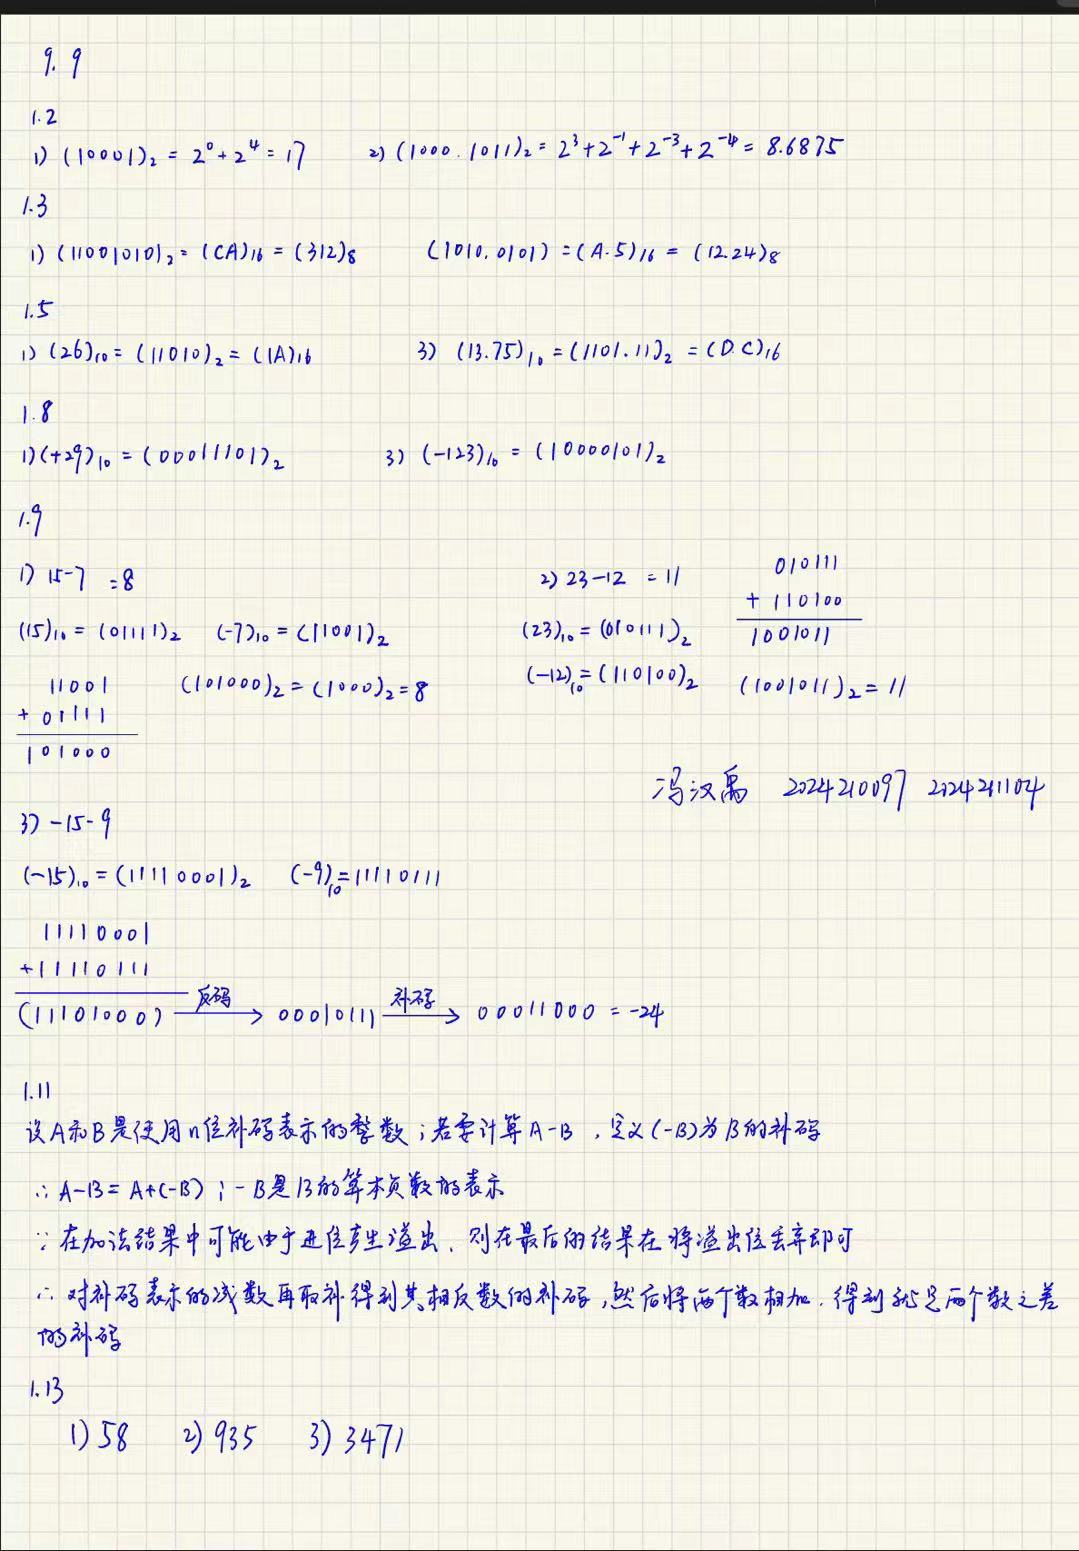 9.9
1.2
1) (10001)₂ = 2⁰+2⁴ = 17 2) (1000.1011)₂ = 2³+2⁻¹+2⁻³+2⁻⁴ = 8.6875
1.3
1) (11001010)₂ = (CA)₁₆ = (312)₈ (1010.0101) = (A.5)₁₆ = (12.24)₈
1.5
1) (26)₁₀ = (11010)₂ = (1A)₁₆ 3) (13.75)₁₀ = (1101.11)₂ = (D.C)₁₆
1.8
1) (+29)₁₀ = (00011101)₂ 3) (-123)₁₀ = (10000101)₂
1.9
1) 15-7 =8 2) 23-12 = 11
010111
+ 110100
1001011
(15)₁₀ = (01111)₂ (-7)₁₀ = (11001)₂ (23)₁₀ = (010111)₂
(-12)₁₀ = (110100)₂ (1001011)₂ = 11
11001 (101000)₂ = (1000)₂ = 8
+ 01111
101000
冯汉禹 2024210097 2024211104
3) -15-9
(-15)₁₀ = (11110001)₂ (-9)₁₀ = 11110111
11110001
+11110111
(11101000) 反码 → 00010111 补码 → 00011000 = -24
1.11
设A和B是使用n位补码表示的整数;若要计算A-B,定义(-B)为B的补码
∴ A-B = A+(-B);-B是B的算术负数的表示
∵ 在加法结果中可能由于进位产生溢出、则在最后的结果在将溢出位丢弃即可
∴ 对补码表示的减数再取补得到其相反数的补码,然后将两个数相加,得到就是两个数之差
的补码
1.13
1) 58 2) 935 3) 3471